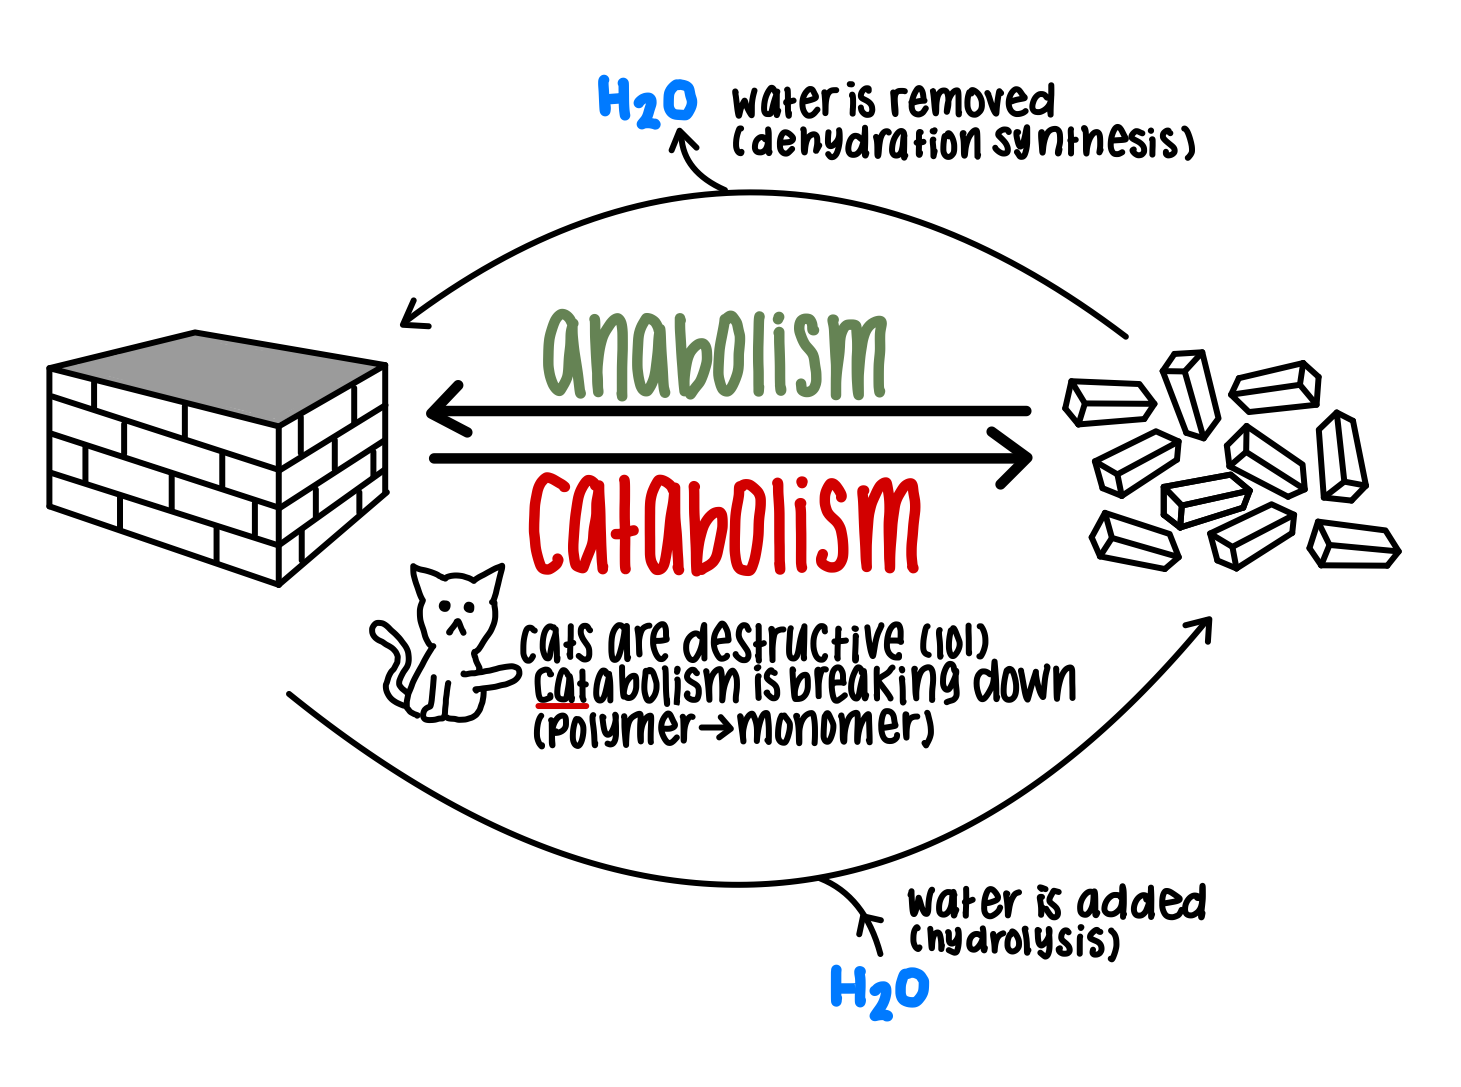 H2O
water is removed
(dehydration synthesis)
anabolism
catabolism
cats are destructive (lol)
catabolism is breaking down
(polymer→monomer)
water is added
(hydrolysis)
H2O